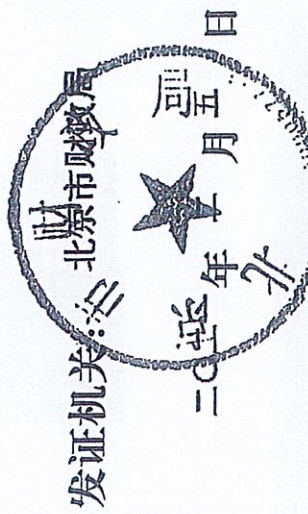 发证机关：北京市财政局
二〇 年 月 日